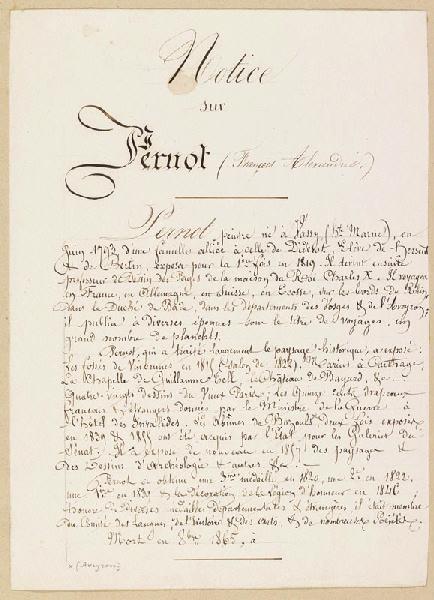 Notice
sur
Pernot (François Alexandre.)
Pernot, peintre né à Vassy (Hte Marne), en
Juin 1793, d'une famille alliée à celle de Diderot. Elève de
& de Bertin, exposa pour la 1ère fois en 1819. Il devint ensuite
professeur de Dessin des Pages de la maison du Roi Charles X. Il voyagea
en France, en Allemagne, en Suisse, en Ecosse, sur les bords du Rhin
dans le Duché de Bade, dans les départements des Vosges & de l'Aveyron
il publia à diverses époques sous le titre de Voyages, un
grand nombre de planches.
Pernot, qui a traité savamment le paysage historique, a exposé:
Les fossés de Vincennes en 1815 (Salon de 1822).
La Chapelle de Guillaume Tell, le Château de Bayard, &
Quatre vingts dessins du Vieux Paris; Les
français & étrangers donnés par le Ministre de la Guerre à
l'Hôtel des Invalides, les ruines de deux fois exposées
en & 1855 ont été acquis par l'Etat pour les Galeries du
Sénat. Il a exposé de nouveau en 1857 des paysages &
des Dessins d'archéologie & autres &a.
Pernot a obtenu une médaille en 1820, une 2e en 1822,
une 1ère en 1839 & la Décoration de la Légion d'honneur en 1846.
honoré de diverses médailles départementales & étrangères il était membre
du Comité des Langues, de l'histoire & des arts, & de nombreuses Sociétés.
Mort en 8bre 1865, à
x (Aveyron)